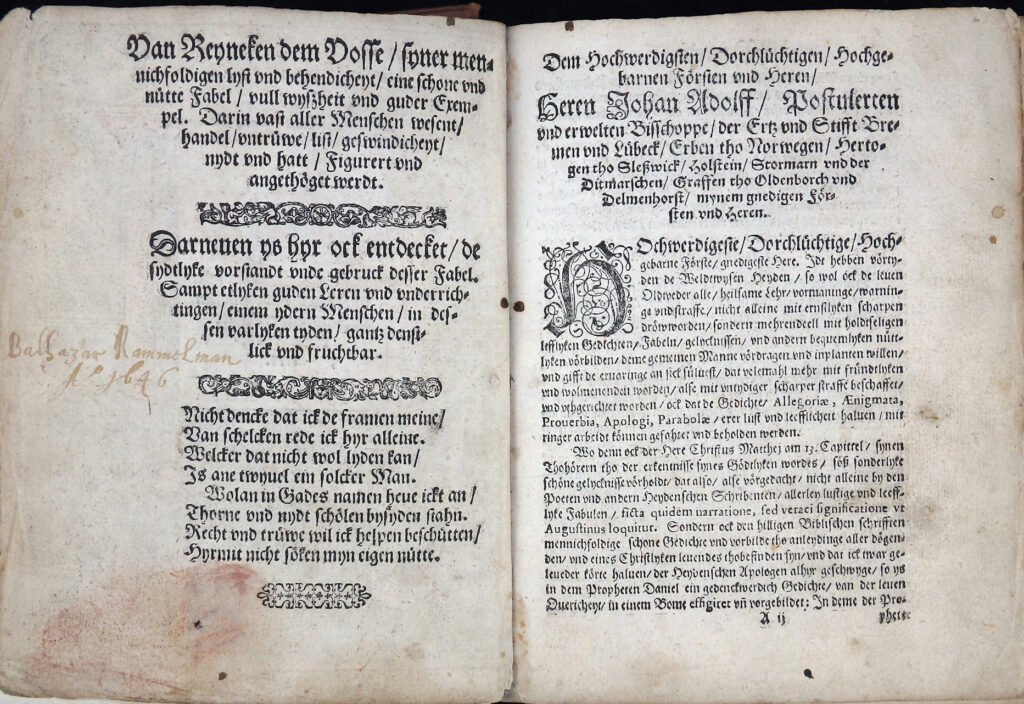 Van Reyneken dem Vosse / syner men-
nichfoldigen lyst vnd behendicheyt / eine schone vnd
nütte Fabel / vull wyßheit vnd guder Exem-
pel. Darin vast aller Menschen wesent /
handel / vntrüwe / list / geswindicheyt /
nydt vnd hatt / Figurert vnd
angethöget werdt.
Darneuen ys hyr ock entdecket / de
sydtlyke vorstandt vnde gebruck desser Fabel.
Sampt etlyken guden Leren vnd vnderrich-
tingen / einem ydern Menschen / in des-
sen varlyken tyden / gantz denst-
lick vnd fruchtbar.
Balthazar Rammelman
Aº 1646
Nicht dencke dat ick de framen meine /
Van schelcken rede ick hyr alleine.
Welcker dat nicht wol lyden kan /
Is ane twyuel ein solcker Man.
Wolan in Gades namen heue ickt an /
Thorne vnd nydt schölen bysyden stahn.
Recht vnd trüwe wil ick helpen beschütten /
Hyrmit nicht söken myn eigen nütte.
Dem Hochwerdigsten / Dorchlüchtigen / Hochge-
barnen Försten vnd Heren /
Heren Johan Adolff / Postulerten
vnd erwelten Bisschoppe / der Ertz vnd Stifft Bre-
men vnd Lübeck / Erben tho Norwegen / Herto-
gen tho Sleßwick / Holstein / Stormarn vnd der
Ditmarschen / Graffen tho Oldenborch vnd
Delmenhorst / mynem gnedigen För-
sten vnd Heren.
HOchwerdigeste / Dorchlüchtige / Hoch-
gebarne Förste / gnedigeste Here. Idt hebben vörty-
den de Weltwysen Heyden / so wol öck de leuen
Oldveder alle / heilsame Lehr / vormaninge / warnin-
ge vnd straffe / nicht alleine mit ernstlyken scharpen
dröwworden / sondern mehrendeell mit holdseligen
lefflyken Gedichten / Fabeln / gelycknissen / vnd andern bequemlyken nütt-
lyken vörbilden / deme gemeinen Manne vördragen vnd inplanten willen /
vnd gifft de eruaringe an sick süluest / dat velemahl mehr mit fründtlyken
vnd wolmenenden worden / alse mit vntydiger scharper straffe beschaffet /
vnd vthgerichtet worden / ock dat de Gedichte / Allegoriæ, Ænigmata,
Prouerbia, Apologi, Parabolæ / erer lust vnd leefflicheit haluen / mit
ringer arbeidt können gefahtet vnd beholden werden.
Wo denn ock der Here Christus Matthej am 13. Capittel / synen
Thohörern tho der erkentnisse synes Gödtlyken wordes / söß sonderlyke
schöne gelycknisse vörholdt / dat also / alse vörgedacht / nicht alleine by den
Poeten vnd andern Heydenschen Schribenten / allerley lustige vnd leeff-
lyke Fabulen / ficta quidem narratione, sed veraci significatione vt
Augustinus loquitur. Sondern ock den hilligen Biblischen schrifften
mennichfoldige schone Gedichte vnd vorbilde tho anleydinge aller dögen-
den / vnd eines Christlyken leuendes thobefinden syn / vnd dat ick twar ge-
leueder körte haluen / der Heydenschen Apologen alhyr geschwyge / so ys
in dem Propheten Daniel ein gedenckwerdich Gedichte / van der leuen
Ouericheyt / in einem Bome effigiret vñ vorgebildet: In deme der Pro-
A ij
phete